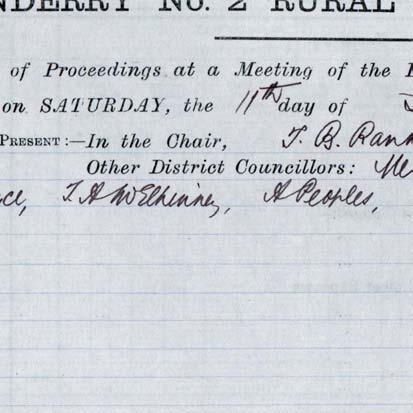 NDERRY No. 2 RURAL
of Proceedings at a Meeting of the
on SATURDAY, the 11th day of
PRESENT:—In the Chair, T. B. Rank
Other District Councillors: Me
T A McElhinney, A Peoples,